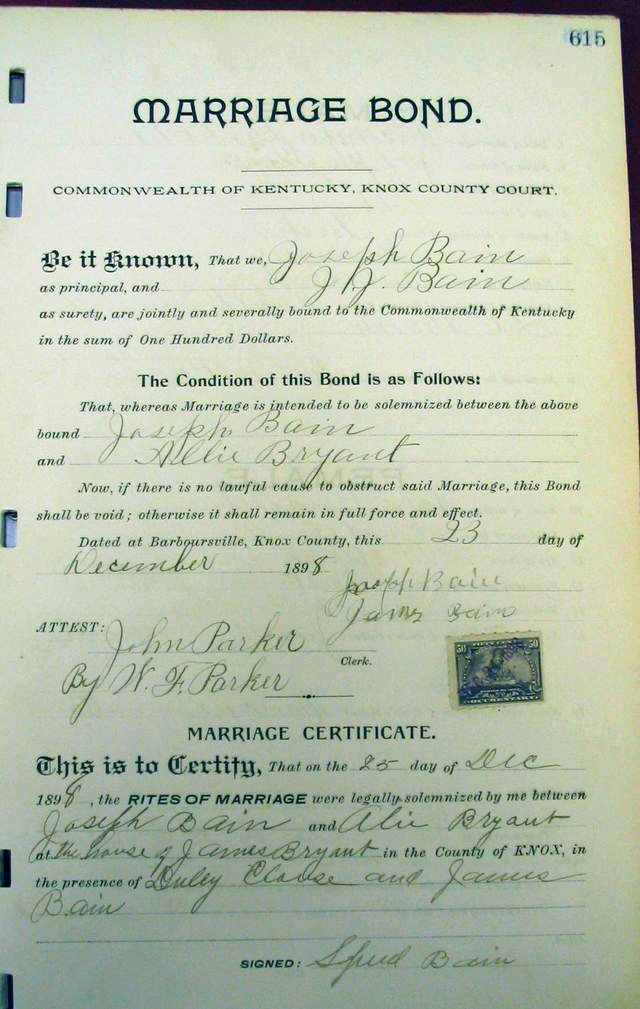 615
MARRIAGE BOND.
COMMONWEALTH OF KENTUCKY, KNOX COUNTY COURT.
Be it Known, That we, Joseph Bain
as principal, and J. J. Bain
as surety, are jointly and severally bound to the Commonwealth of Kentucky
in the sum of One Hundred Dollars.
The Condition of this Bond is as Follows:
That, whereas Marriage is intended to be solemnized between the above
bound Joseph Bain
and Allie Bryant
Now, if there is no lawful cause to obstruct said Marriage, this Bond
shall be void; otherwise it shall remain in full force and effect.
Dated at Barboursville, Knox County, this 23 day of
December 1898
Joseph Bain
James Bain
ATTEST: John Parker
Clerk.
By W. F. Parker
50 50
DOCUMENTARY
MARRIAGE CERTIFICATE.
This is to Certify, That on the 25 day of Dec
1898, the RITES OF MARRIAGE were legally solemnized by me between
Joseph Bain and Alie Bryant
at the house of James Bryant in the County of KNOX, in
the presence of Clouse and James
Bain
SIGNED: Bain